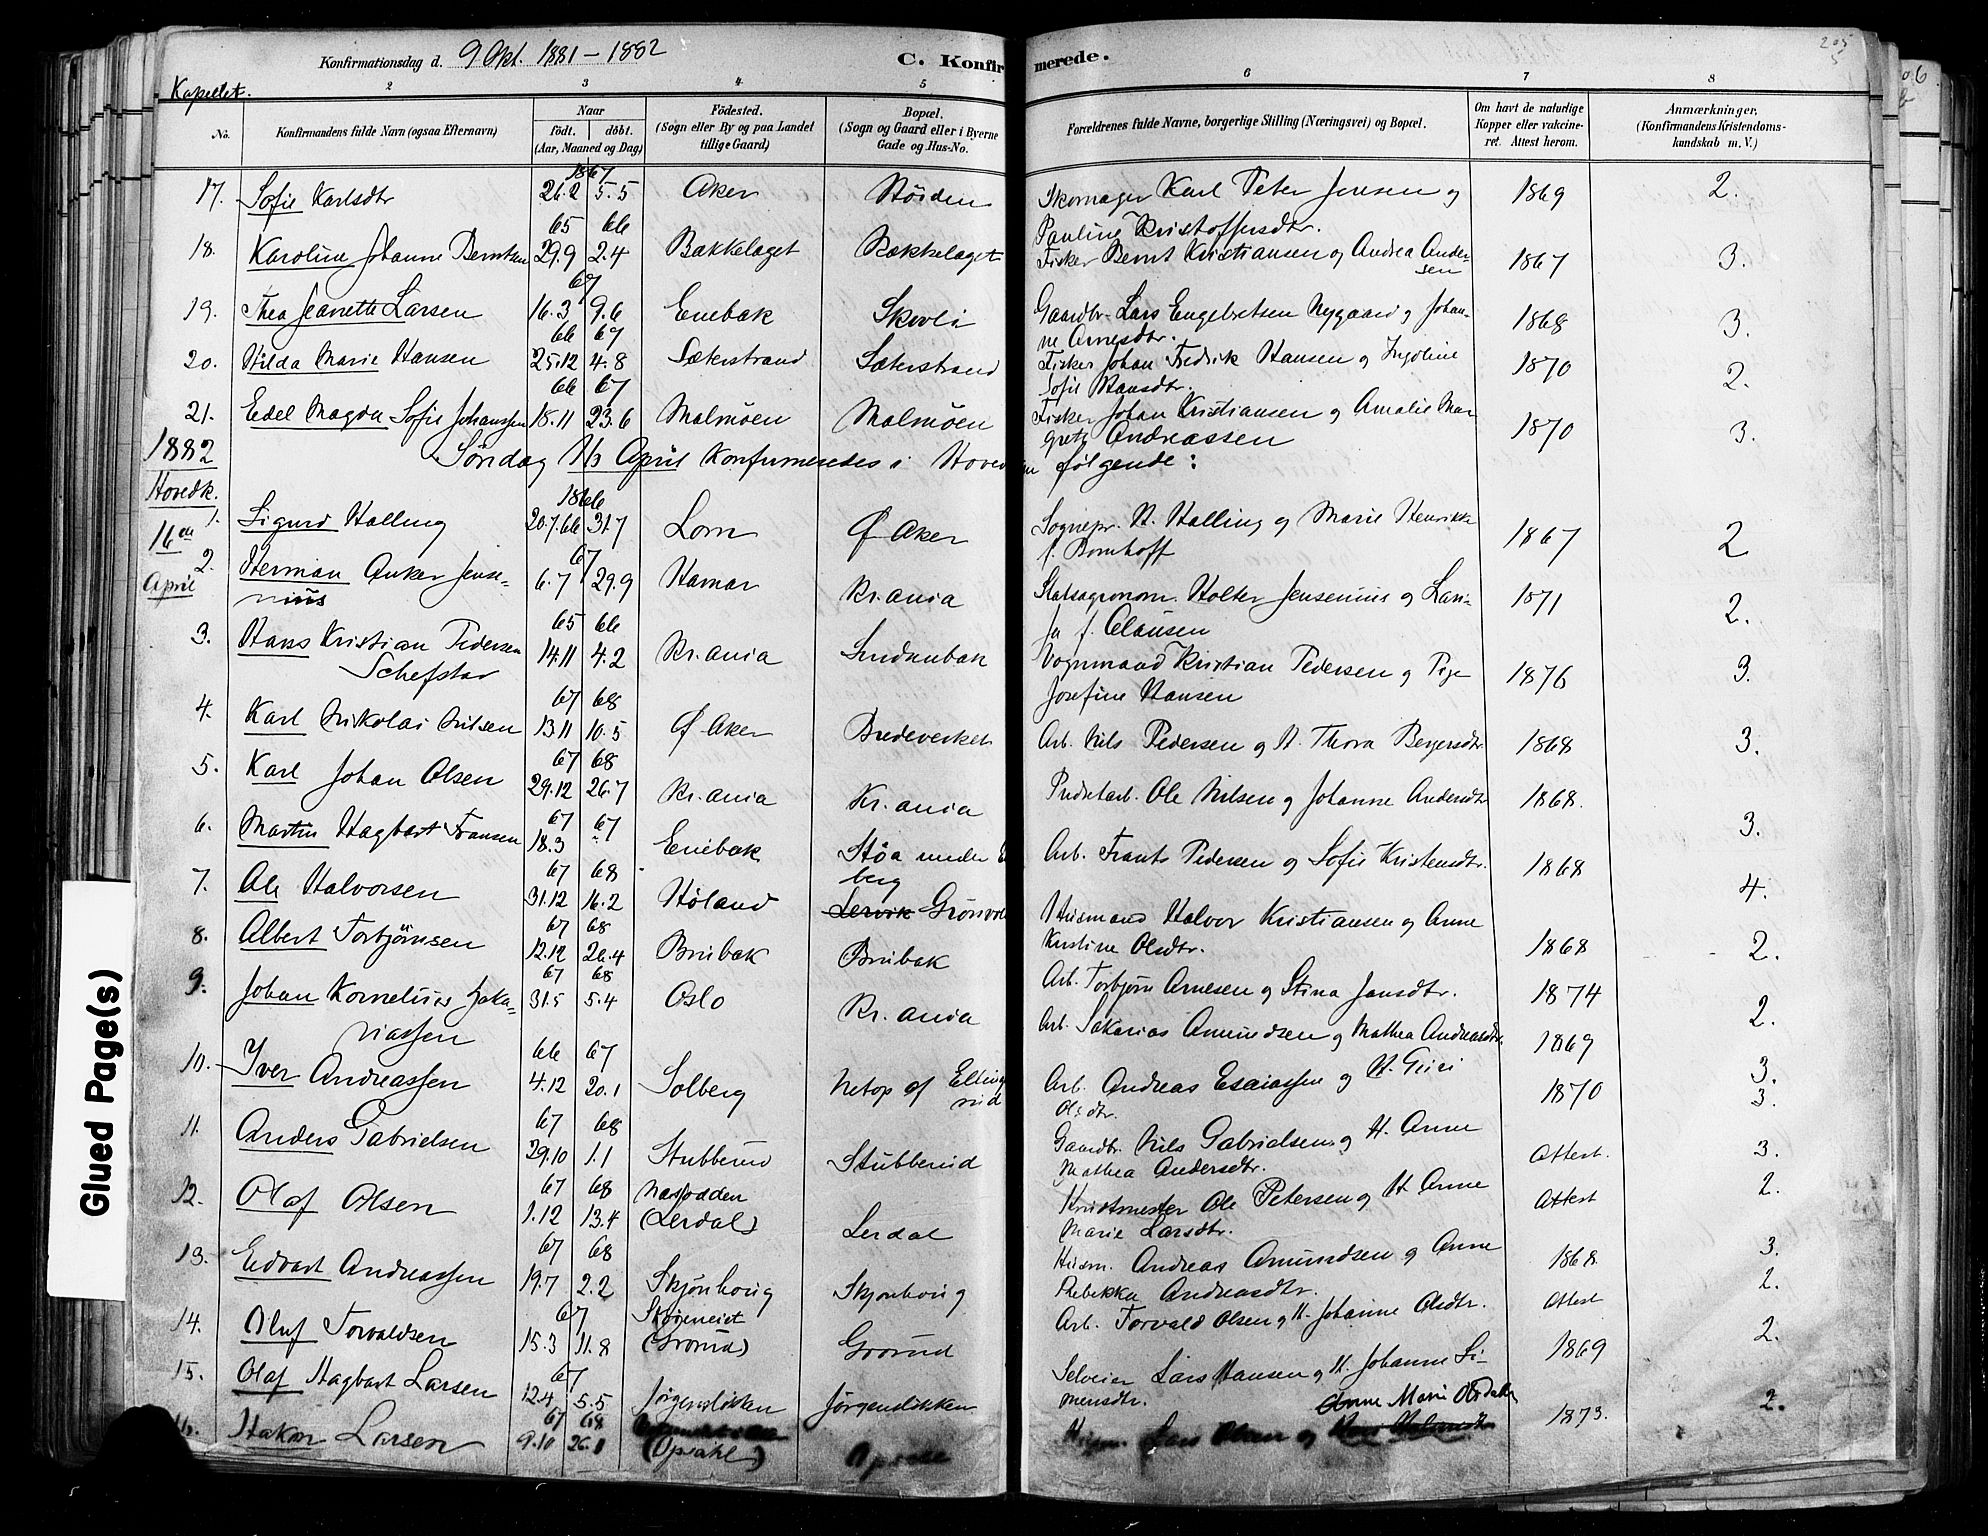 Konfirmationsdag d. 9 Okt. 1881 – 1882
C. Konfirmerede.
205
Kapellet.
2 3 4 5 6 7 8
No.
Konfirmandens fulde Navn (ogsaa Efternavn)
Naar
født. døbt.
(Aar, Maaned og Dag)
Fødested.
(Sogn eller By og paa Landet
tillige Gaard)
Bopæl.
(Sogn og Gaard eller i Byerne
Gade og Hus-No.
Forældrenes fulde Navne, borgerlige Stilling (Næringsvei) og Bopæl.
Om havt de naturlige
Kopper eller vakcine-
ret. Attest herom.
Anmærkninger,
(Konfirmandens Kristendoms-
kundskab m. V.)
1867
17. Sofie Karlsdtr 26.2 5.5 Aker Skomager Karl Peter Jensen og 1869 2.
Pauline Kristoffersdtr.
65 66
18. Karoline Johanne Berntsen 29.9 2.4 Bækkelaget Bækkelaget Fisker Bernt Kristiansen og Andrea Ander- 1867 3.
sen
67
19. Thea Jeanette Larsen 16.3 9.6 Enebak Skovli Gaardbr. Lars Engebretsen Nygaard og Johan- 1868 3.
ne Arnesdtr.
66 67
20. Hilda Marie Hansen 25.12 4.8 Sæterstrand Sæterstrand Fisker Johan Fredrik Hansen og Ingoline 1870 2.
Sofie Hansdtr.
66 67
21. Edel Magda Sofie Johanssen 18.11 23.6 Malmøen Malmøen Fisker Johan Kristiansen og Amalie Mar- 1870 3.
grete Andreassen
1882
Søndag April Konfirmeredes i følgende:
Hovedk.
16 April
1866
1. Sigurd Halling 20.7.66 31.7 Lom Ø Aker Sognepr. H. Halling og Marie Henrikke 1867 2
f. Bomhoff
67
2. Herman Anker Jense- 6.7 29.9 Hamar Kr.ania Statsagronom. Holter Jensenius og Lari- 1871 2.
nius
sa f. Clausen
65 66
3. Hans Kristian Pedersen 14.11 4.2 Kr.ania Vognmand Kristian Pedersen og Pige 1876 3.
Schefstad
Josefine Hansen
67 68
4. Karl Nikolai Nilsen 13.11 10.5 Ø Aker Bredeverket Arb. Nils Pedersen og H. Thora Bergersdtr. 1868 3.
67 68
5. Karl Johan Olsen 29.12 26.7 Kr.ania Kr.ania Ole Nilsen og Johanne Andersdtr 1868. 3.
67 67
6. Martin Hagbart Fransen 18.3 Enebak Støa under
berg
Arb. Frants Pedersen og Sofie Kristensdtr. 1868 4.
67 68
7. Ole Halvorsen 31.12 16.2 Høland Lervik Grønvold Husmand Halvor Kristiansen og Anne 1868 2.
Kristine Olsdtr.
67 68
8. Albert Torbjørnsen 12.12 26.4 Brubak Brubak Arb. Torbjørn Arnesen og Stina Jansdtr. 1874 2.
67 68
9. Johan Kornelius Zaka- 31.5 5.4 Oslo Kr.ania Arb. Sakarias Amundsen og Mathea Andreasdtr. 1869 3.
riassen
66 67
10. Iver Andreassen 4.12 20.1 Solberg Netop af Elling-
rud
Arb. Andreas Esaiassen og H. Guri 1870 3.
Olsdtr.
67 68
11. Anders Gabrielsen 29.10 1.1 Stubberud Stubberud Gaardbr. Nils Gabrielsen og H. Anne Attest. 3.
Mathea Andersdtr.
67 68
12. Olaf Olsen 1.12 13.4 Næsodden
(Lerdal) Lerdal Krudtmester Ole Petersen og H Anne Attest 2.
Marie Larsdtr.
67 68
13. Edvart Andreassen 19.7 2.2 Skjønhoug Skjønhoug Husm. Andreas Amundsen og Anne 1868 3.
Rebekka Andreasdtr.
67
14. Oluf Torvaldsen 15.3 11.8 (Grorud) Grorud Arb. Torvald Olsen og H. Johanne Olsdtr. Attest 2.
67
15. Olaf Hagbart Larsen 12.4 5.5 Jørgensløkken Jørgensløkken Selveier Lars Hansen og H. Johanne Si- 1869 2.
mensdtr.
67 68
16. Hakon Larsen 9.10 26.1 (Opsahl) Lars Olsen og Anne Marie Olsdatter 1873. 2.
Glued Page(s)